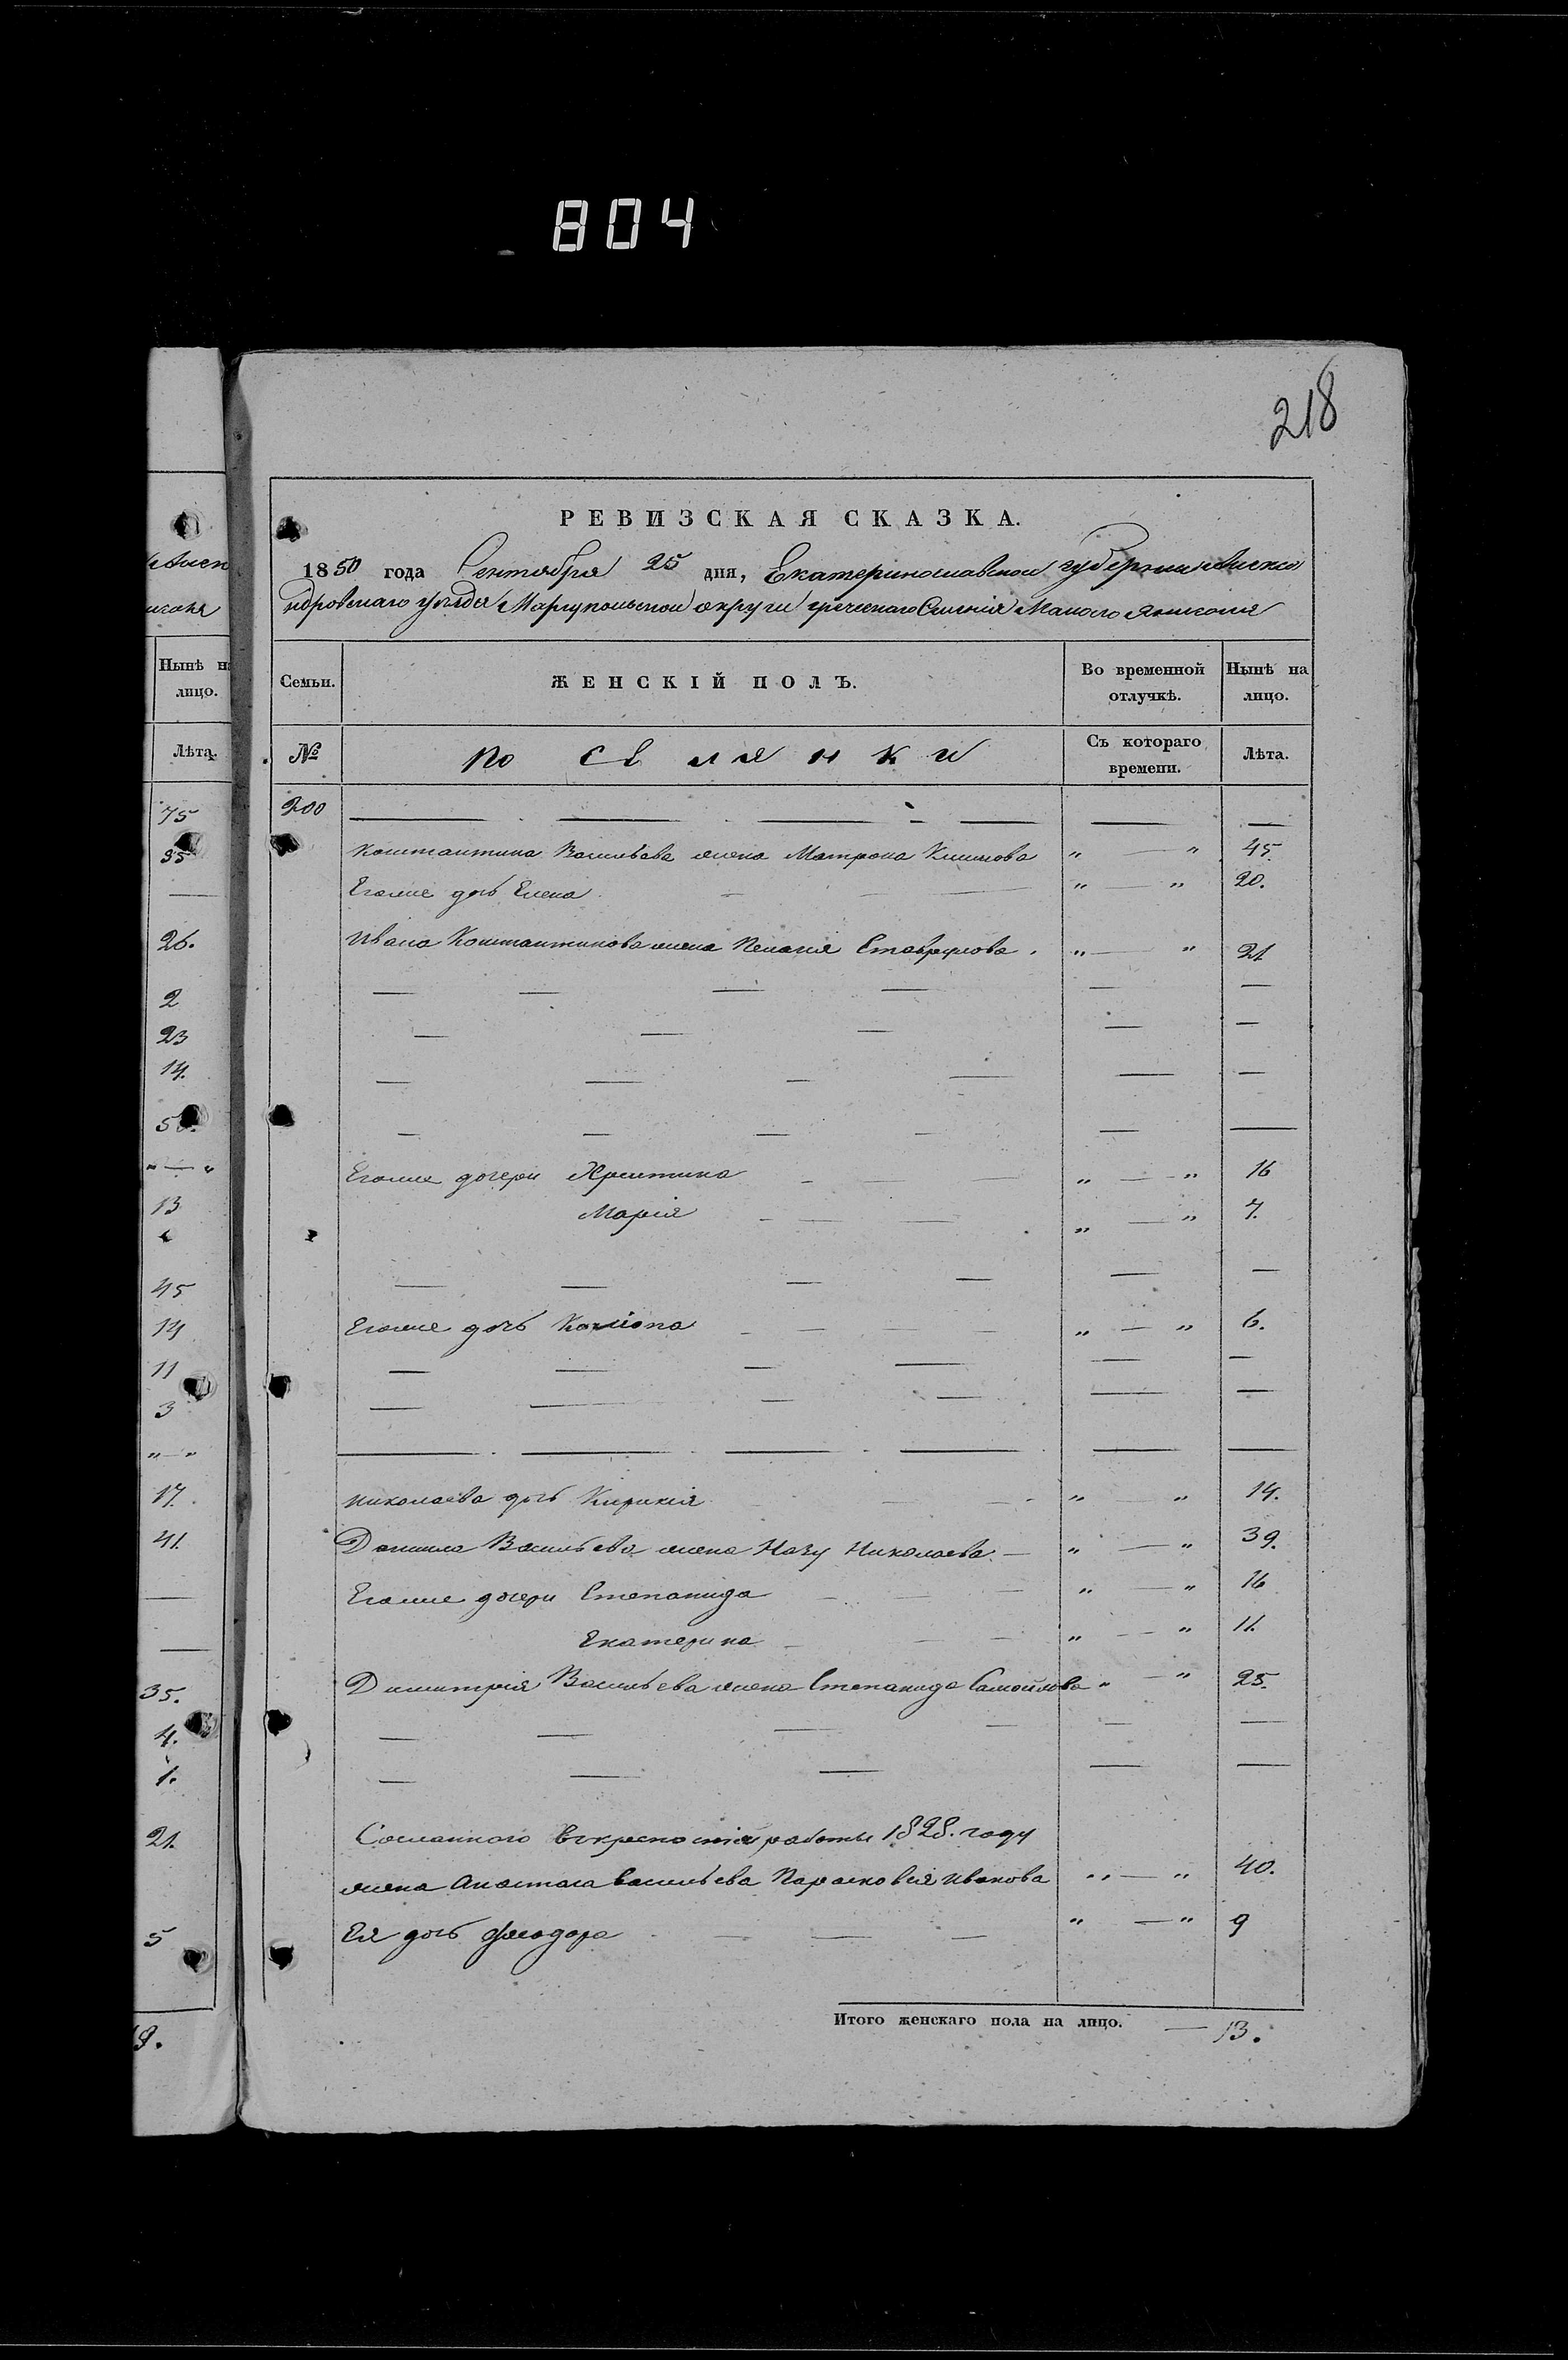 804
218
РЕВИЗСКАЯ СКАЗКА.
1850 года Сентября 25 дня, Екатеринославской губернии Алекса
ндровскаго уѣзда Маріупольской округи греческаго Селенія Малого Янисоля
Нынѣ на лицо.
Семьи.
ЖЕНСКІЙ ПОЛЪ.
Во временной отлучкѣ.
Нынѣ на лицо.
Лѣта.
№
Поселянки
Съ котораго времени.
Лѣта.
200
Константина Васильева жена Матрона Климова " — " 45.
Егоже дочь Елена " — " 20.
Ивана Константинова жена Пелагія " — " 21
Егоже дочери Христина " — " 16
Марія " — " 7.
Егоже дочь " — " 6.
Николаева дочь Кирикія " " 14.
Данила Васильева жена Назу Николаева — " — " 39.
Егоже дочери Степанида " — " 16
Екатерина " — " 11.
Димитрія Васильева жена Степанида Самойлова " — " 25.
Сосланного вкрепостія работы 1828. году
жена Анастаса Васильева Парасковія Иванова " — " 40.
Ея дочь Феодора " — " 9
Итого женскаго пола на лицо. — 13.
75
35
26.
2
23
14.
" — "
13
45
14
11
3
" — "
17.
41.
35.
4.
1.
21.
5